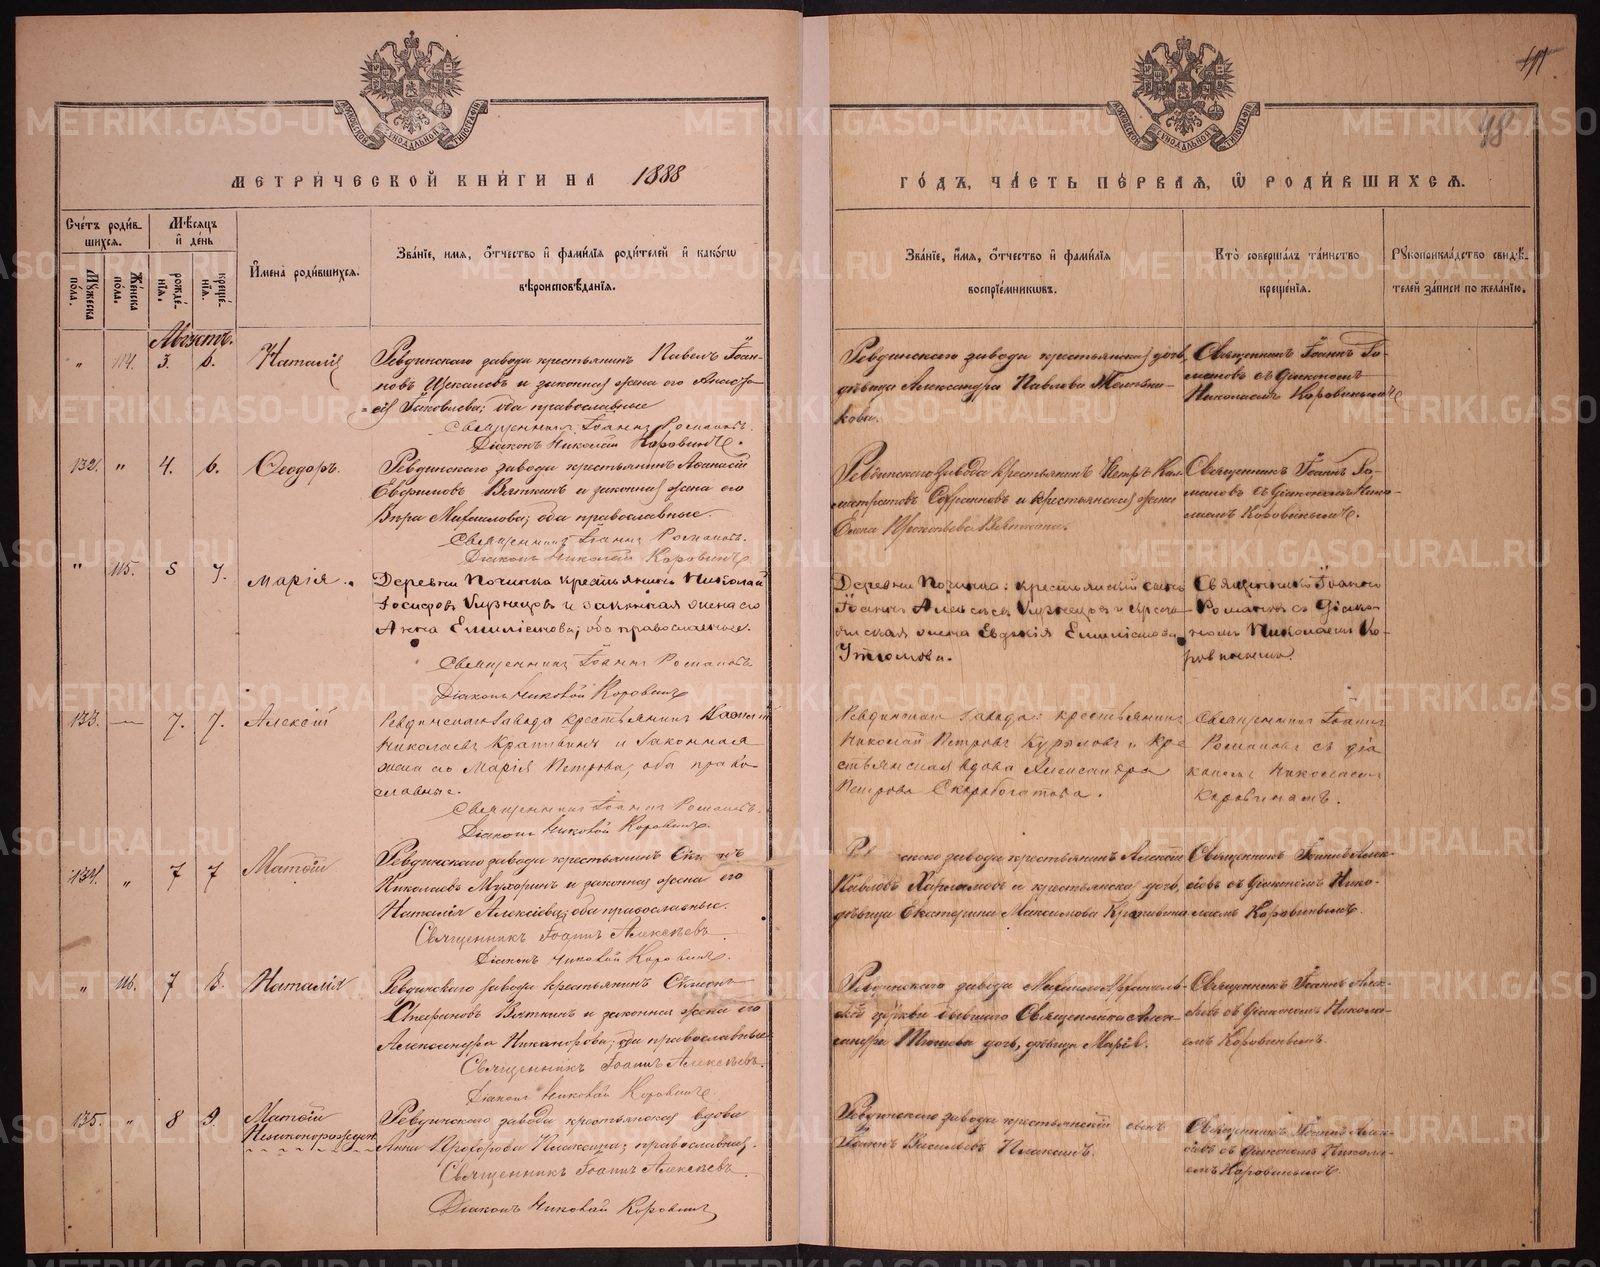 48
МЕТРИЧЕСКОЙ КНИГИ НА 1888
ГОДЪ, ЧАСТЬ ПЕРВАЯ, Ѡ РОДИВШИХСЯ.
Счетъ родив-
шихся.
Мѣсяцъ
и день
Мужеска
пола.
Женска
пола.
рожде-
нія.
креще-
нія.
Имена родившихся.
Званіе, имя, отчество и фамилія родителей и какогѡ
вѣроисповѣданія.
Званіе, имя, отчество и фамилія
воспріемниковъ.
Кто совершалъ таинство
крещенія.
Рукоприкладство свидѣ-
телей записи по желанію.
Августъ.
" 114. 3. 6. Наталія
Ревдинскаго завода крестьянинъ Павелъ Іоан-
новъ и законная жена его Анаста-
сія Іаковлева; оба православные
Священникъ Іоаннъ Романовъ.
Діаконъ Николай Коровинъ.
Ревдинскаго завода крестьянская дочь,
дѣвица Александра Павлова Мельни-
кова.
Священникъ Іоаннъ Ро-
мановъ съ діакономъ
Николаемъ Коровинымъ
132. " 4. 6. Ѳеодоръ.
Ревдинскаго завода крестьянинъ Аѳанасій
Евфимовъ Вяткинъ и законная жена его
Вѣра Михаилова; оба православные.
Священникъ Іоаннъ Романовъ.
Діаконъ Николай Коровинъ
Ревдинскаго завода крестьянинъ Петръ Кал-
листратовъ и крестьянская жена
Священникъ Іоаннъ Ро-
мановъ съ діакономъ Нико-
лаемъ Коровинымъ.
" 115. 5 7. Марія.
Деревни Починка крестьянинъ Николай
Іосифовъ Кузнецовъ и законная жена его
Анна Емиліанова; оба православные.
Священникъ Іоаннъ Романовъ
Діаконъ Николай Коровинъ
Деревни Починка: крестьянскій сынъ
Іоаннъ Алексѣевъ Кузнецовъ и кресть-
янская жена Евдокія Емиліанова
Утюмова.
Священникъ Іоаннъ
Романовъ съ діако-
номъ Николаемъ Ко-
ровинымъ.
133. — 7. 7. Алексій
Ревдинскаго завода крестьянинъ
Николаевъ Крапивинъ и законная
жена его Марія Петрова, оба право-
славные.
Священникъ Іоаннъ Романовъ.
Діаконъ Николай Коровинъ.
Ревдинскаго завода: крестьянинъ
Николай Петровъ Курыловъ и кре
стьянская вдова Александра
Петрова Скоробогатова.
Священникъ Іоаннъ
Романовъ съ діа
кономъ Николаемъ
Коровинымъ.
134. " 7 7 Матѳій
Ревдинскаго завода крестьянинъ
Николаевъ Мухоринъ и законная жена его
Наталія Алексіева; оба православные.
Священникъ Іоаннъ Алексѣевъ.
Діаконъ Николай Коровинъ.
завода крестьянинъ Алексій
Павловъ Харламовъ и крестьянская дочь,
дѣвица Екатерина Максимова Крапивина
Священникъ Іоаннъ Алек-
сѣевъ съ діакономъ Нико-
лаемъ Коровинымъ.
" 116. 7 8. Наталія
Ревдинскаго завода крестьянинъ Сѵмеонъ
Вяткинъ и законная жена его
Александра Никанорова; оба православные
Священникъ Іоаннъ Алексѣевъ.
Діаконъ Николай Коровинъ.
Ревдинскаго завода Михаило-Архангель-
ской церкви бывшаго Священника Алек-
сандра дочь, дѣвица Марія.
Священникъ Іоаннъ Алек-
сѣевъ съ діакономъ Никола-
емъ Коровинымъ.
135. " 8 9. Матѳій
Незаконорожден.
Ревдинскаго завода крестьянская вдова
Анна Прохорова Плаксина; православная.
Священникъ Іоаннъ Алексѣевъ
Діаконъ Николай Коровинъ
Ревдинскаго завода крестьянскій сынъ
Іоаннъ Васильевъ Плаксинъ.
Священникъ Іоаннъ Алек-
сѣевъ съ діакономъ Никола-
емъ Коровинымъ.
METRIKI.GASO-URAL.RU